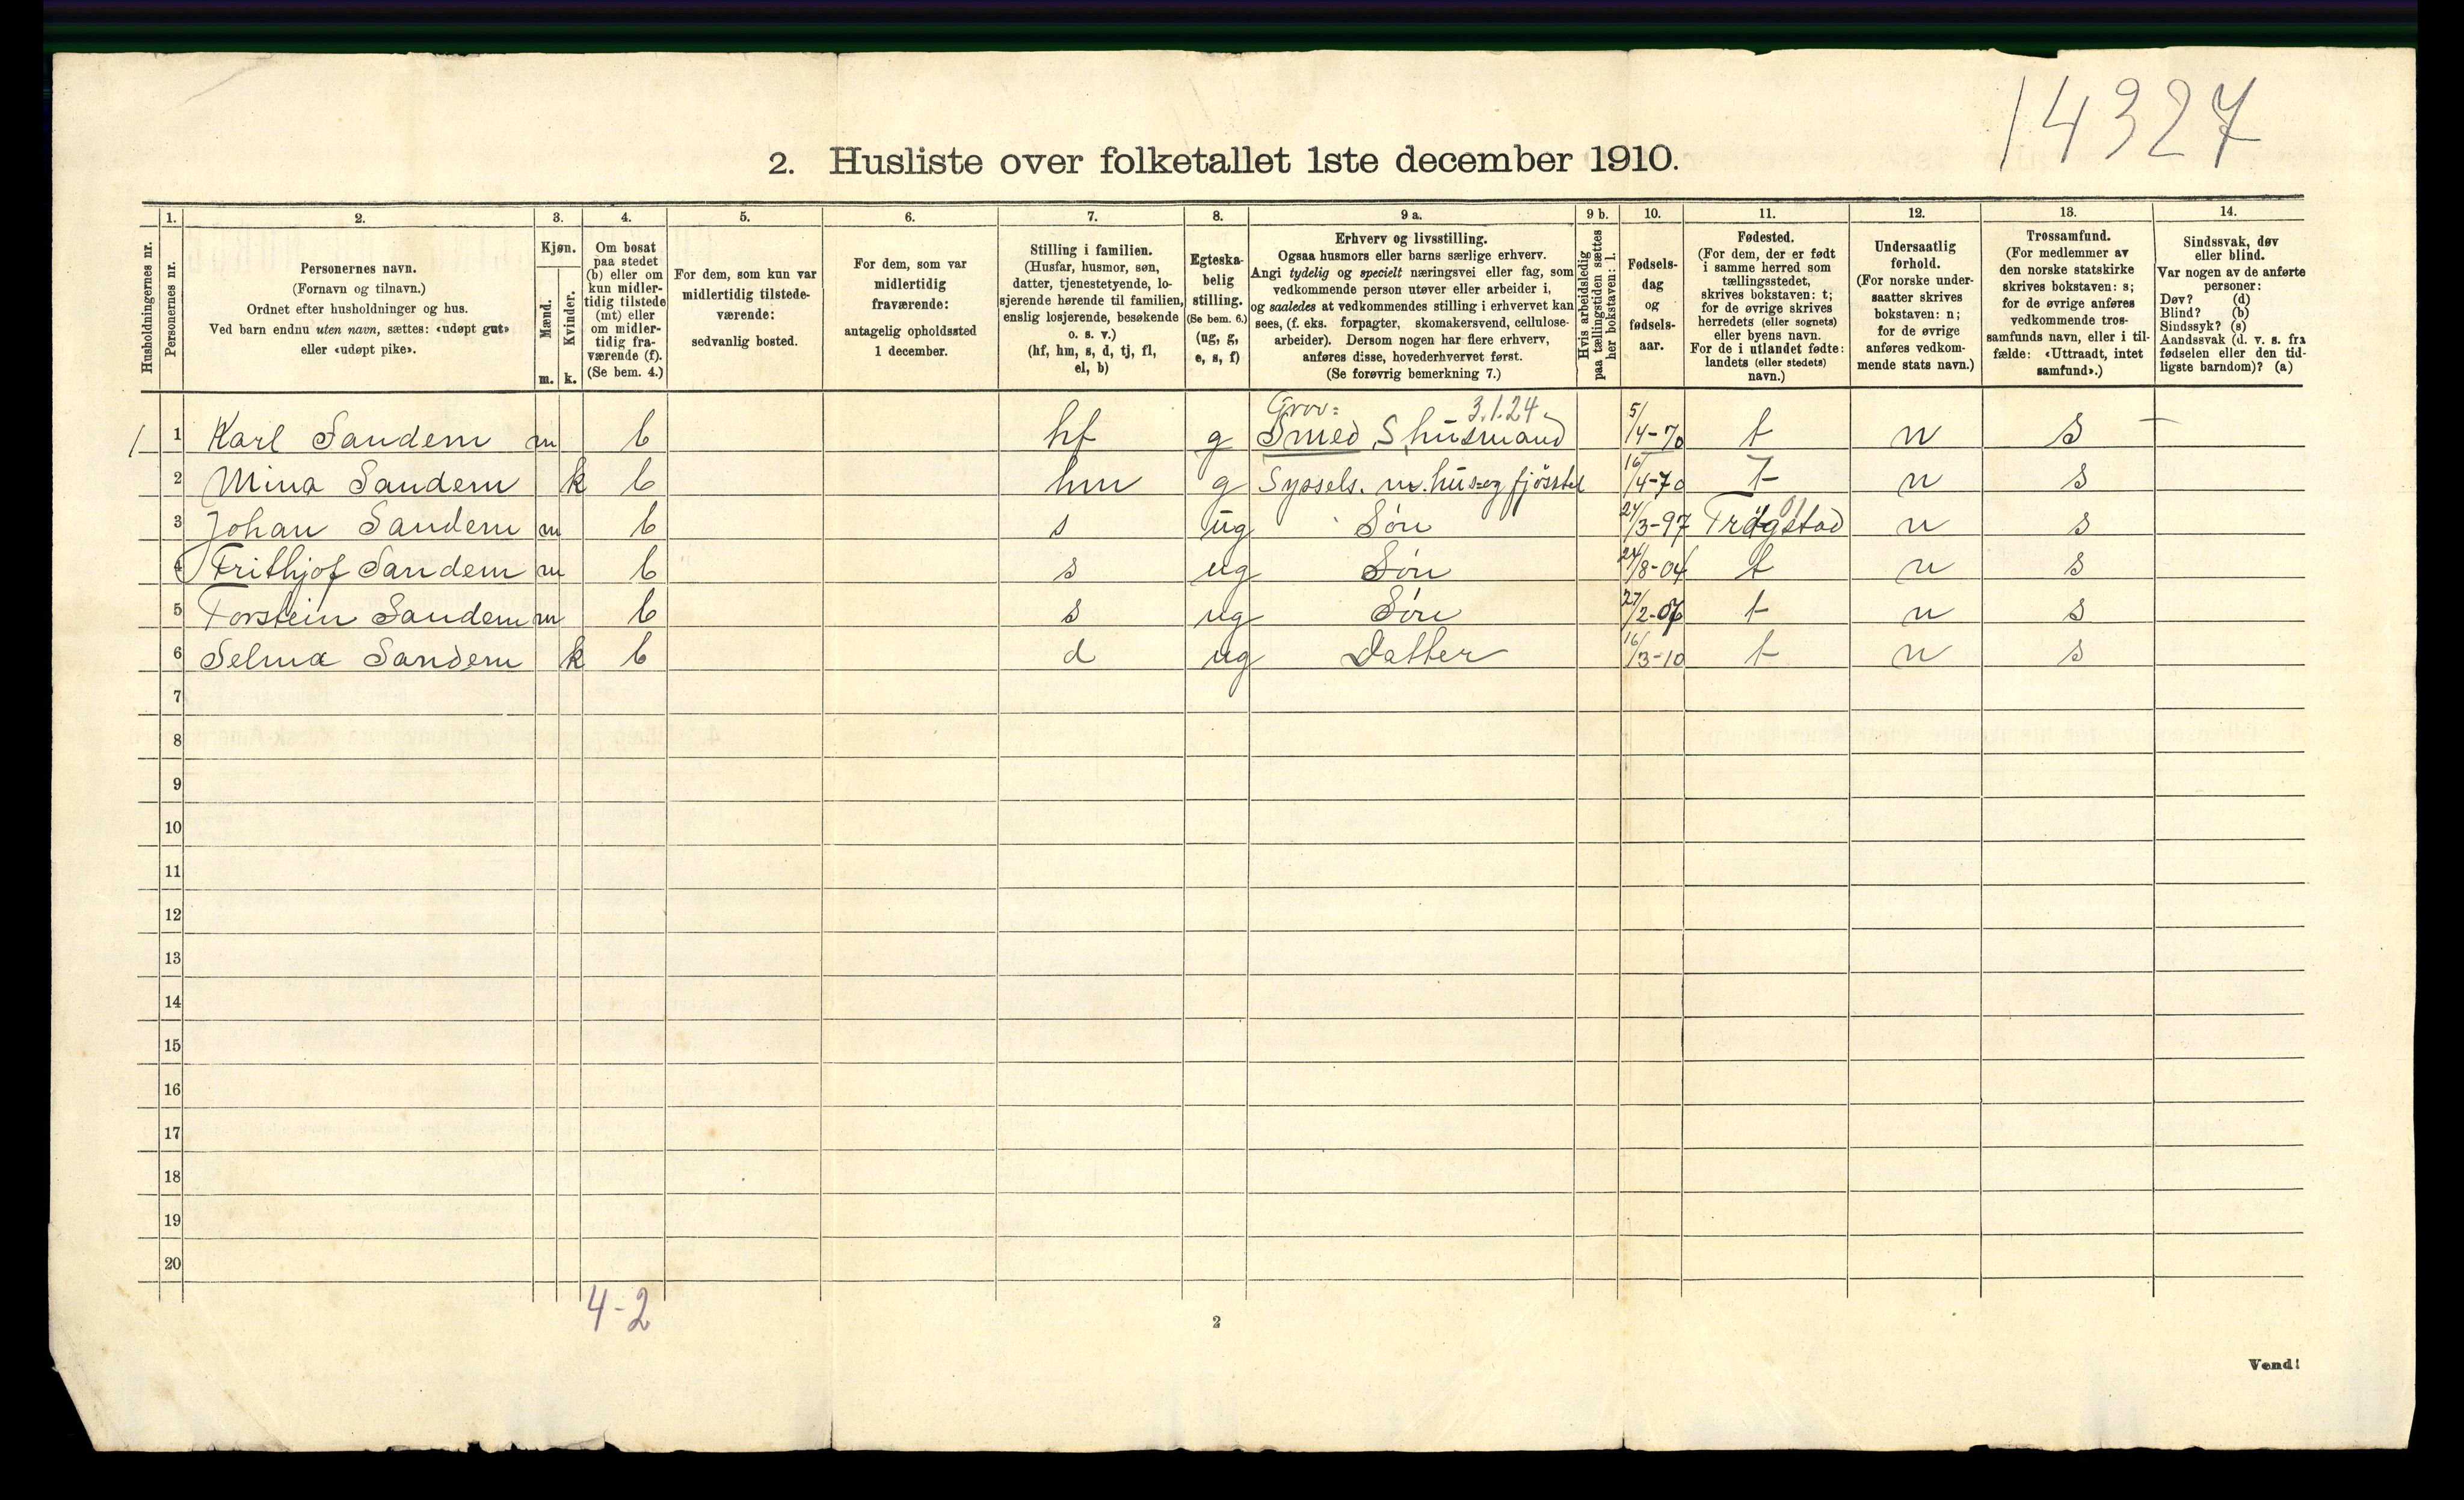 14327
2. Husliste over folketallet 1ste december 1910.
1. 2. 3. 4. 5. 6. 7. 8. 9 a. 9 b. 10. 11. 12. 13. 14.
Husholdningernes nr.
Personernes nr.
Personernes navn.
(Fornavn og tilnavn.)
Ordnet efter husholdninger og hus.
Ved barn endnu uten navn, sættes: «udøpt gut»
eller «udøpt pike».
Kjøn.
Mænd.
Kvinder.
m. k.
Om bosat
paa stedet
(b) eller om
kun midler-
tidig tilstede
(mt) eller
om midler-
tidig fra-
værende (f).
(Se bem. 4.)
For dem, som kun var
midlertidig tilstede-
værende:
sedvanlig bosted.
For dem, som var
midlertidig
fraværende:
antagelig opholdssted
1 december.
Stilling i familien.
(Husfar, husmor, søn,
datter, tjenestetyende, lo-
sjerende hørende til familien,
enslig losjerende, besøkende
o. s. v.)
(hf, hm, s, d, tj, fl,
el, b)
Egteska-
belig
stilling.
(Se bem. 6.)
(ug, g,
e, s, f)
Erhverv og livsstilling.
Ogsaa husmors eller barns særlige erhverv.
Angi tydelig og specielt næringsvei eller fag, som
vedkommende person utøver eller arbeider i,
og saaledes at vedkommendes stilling i erhvervet kan
sees, (f. eks. forpagter, skomakersvend, cellulose-
arbeider). Dersom nogen har flere erhverv,
anføres disse, hovederhvervet først.
(Se forøvrig bemerkning 7.)
Hvis arbeidsledig
paa tællingstiden sættes
her bokstaven: l.
Fødsels-
dag
og
fødsels-
aar.
Fødested.
(For dem, der er født
i samme herred som
tællingsstedet,
skrives bokstaven: t;
for de øvrige skrives
herredets (eller sognets)
eller byens navn.
For de i utlandet fødte:
landets (eller stedets)
navn.)
Undersaatlig
forhold.
(For norske under-
saatter skrives
bokstaven: n;
for de øvrige
anføres vedkom-
mende stats navn.)
Trossamfund.
(For medlemmer av
den norske statskirke
skrives bokstaven: s;
for de øvrige anføres
vedkommende tros-
samfunds navn, eller i til-
fælde: «Uttraadt, intet
samfund».)
Sindssvak, døv
eller blind.
Var nogen av de anførte
personer:
Døv? (d)
Blind? (b)
Sindssyk? (s)
Aandssvak (d. v. s. fra
fødselen eller den tid-
ligste barndom)? (a)
Grov= 3.1.24
1 1 Karl Sandem m b hf g Smed, Shusmand 5/4-70 t n s —
2 Mina Sandem k b hm g Syssels. m. hus=og fjösstel 16/4-70 t n s
3 Johan Sandem m b s ug Søn 24/3-97 Trøgstad n s
4 Frithjof Sandem m b s ug Søn 24/8-04 t n s
5 Torstein Sandem m b s ug Søn 27/2-07 t n s
6 Selma Sandem k b d ug Datter 16/3-10 t n s
7
8
9
10
11
12
13
14
15
16
17
18
19
20
4-2
2
Vend!